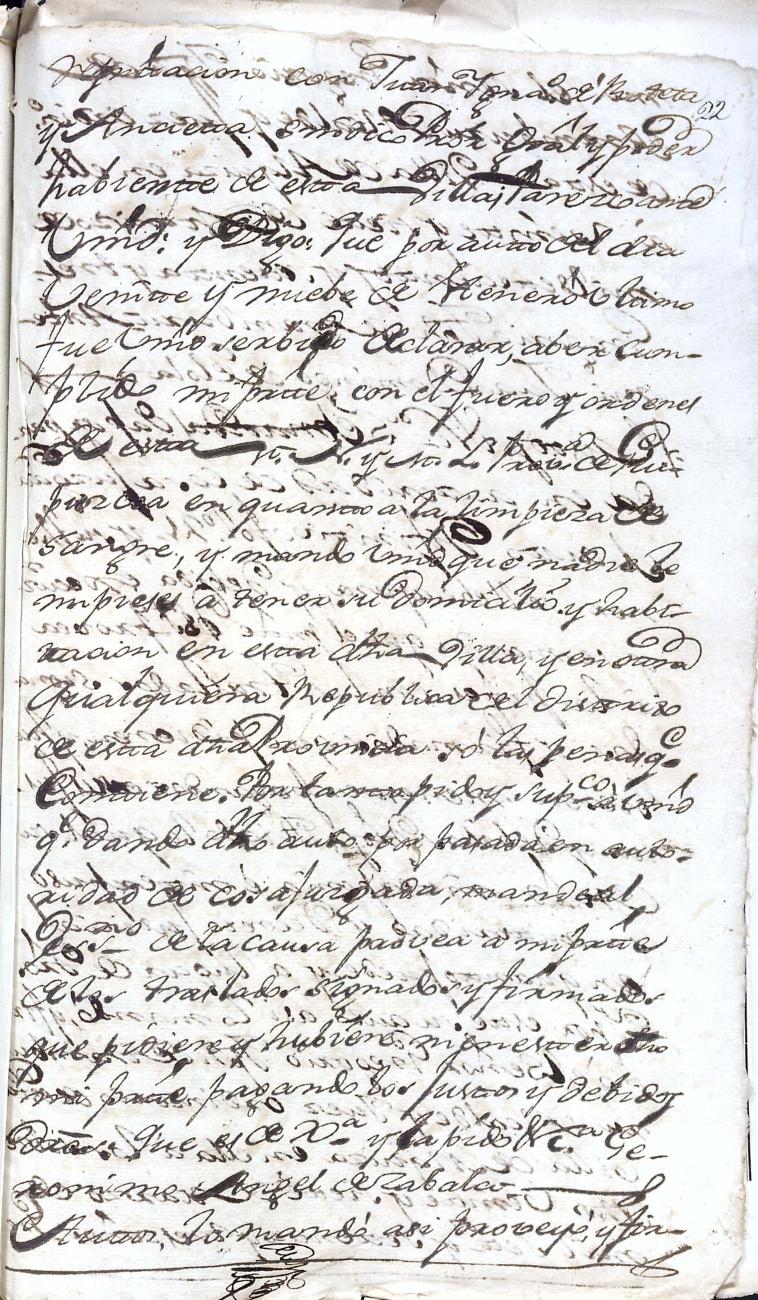 con Juan Ygnaº. de
22
y Ancieta sindico Pror. Gral y poder
habiente de esta Villa, Parezco ante
Vmd: y Digo: Que por auto del dia
Veinte y nuebe de Henero Vltimo
fue Vmd serbido declarar, aber cum-
plido mi parte, con el fuero y ordenes
de esta M. N. y M. L. Prova. de Gui-
puzcoa en quanto a la limpieza de
sangre, y mandó Vmd que nadie le
impidiese á tener su Domicilio y habi-
tacion en esta dha Villa, y en otra
qualquiera Republica del distrito
de esta dha Provincia só las penas qe.
Contiene. Por tanto pido y supco. á Vmd
qe. dando dho auto por pasada en auto-
ridad de cosa juzgada, mande al
Essno de la causa probea a mi parte
de los traslados signados y firmados
que pidiere y hubiere menester dho
mi parte, pagando los justos y debidos
dros. Que es de Xa. y la pido &a. Ge-
ronimo Angel de Zabala
Auto, lo mandó asi proveyó, y fir-